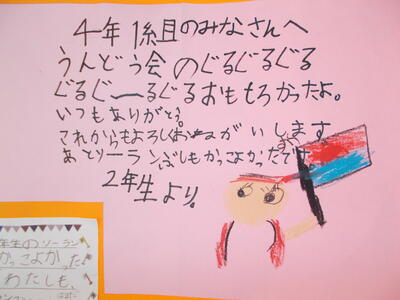 4年1組のみなさんへ
うんどう会のぐるぐるぐる
ぐるぐーるぐるおもろかったよ。
いつもありがとう。
これからもよろしおねがいします
あとソーランぶしもかっこよかったです。
2年生より。
年生のソーラン
かっこよかった
わたしも、